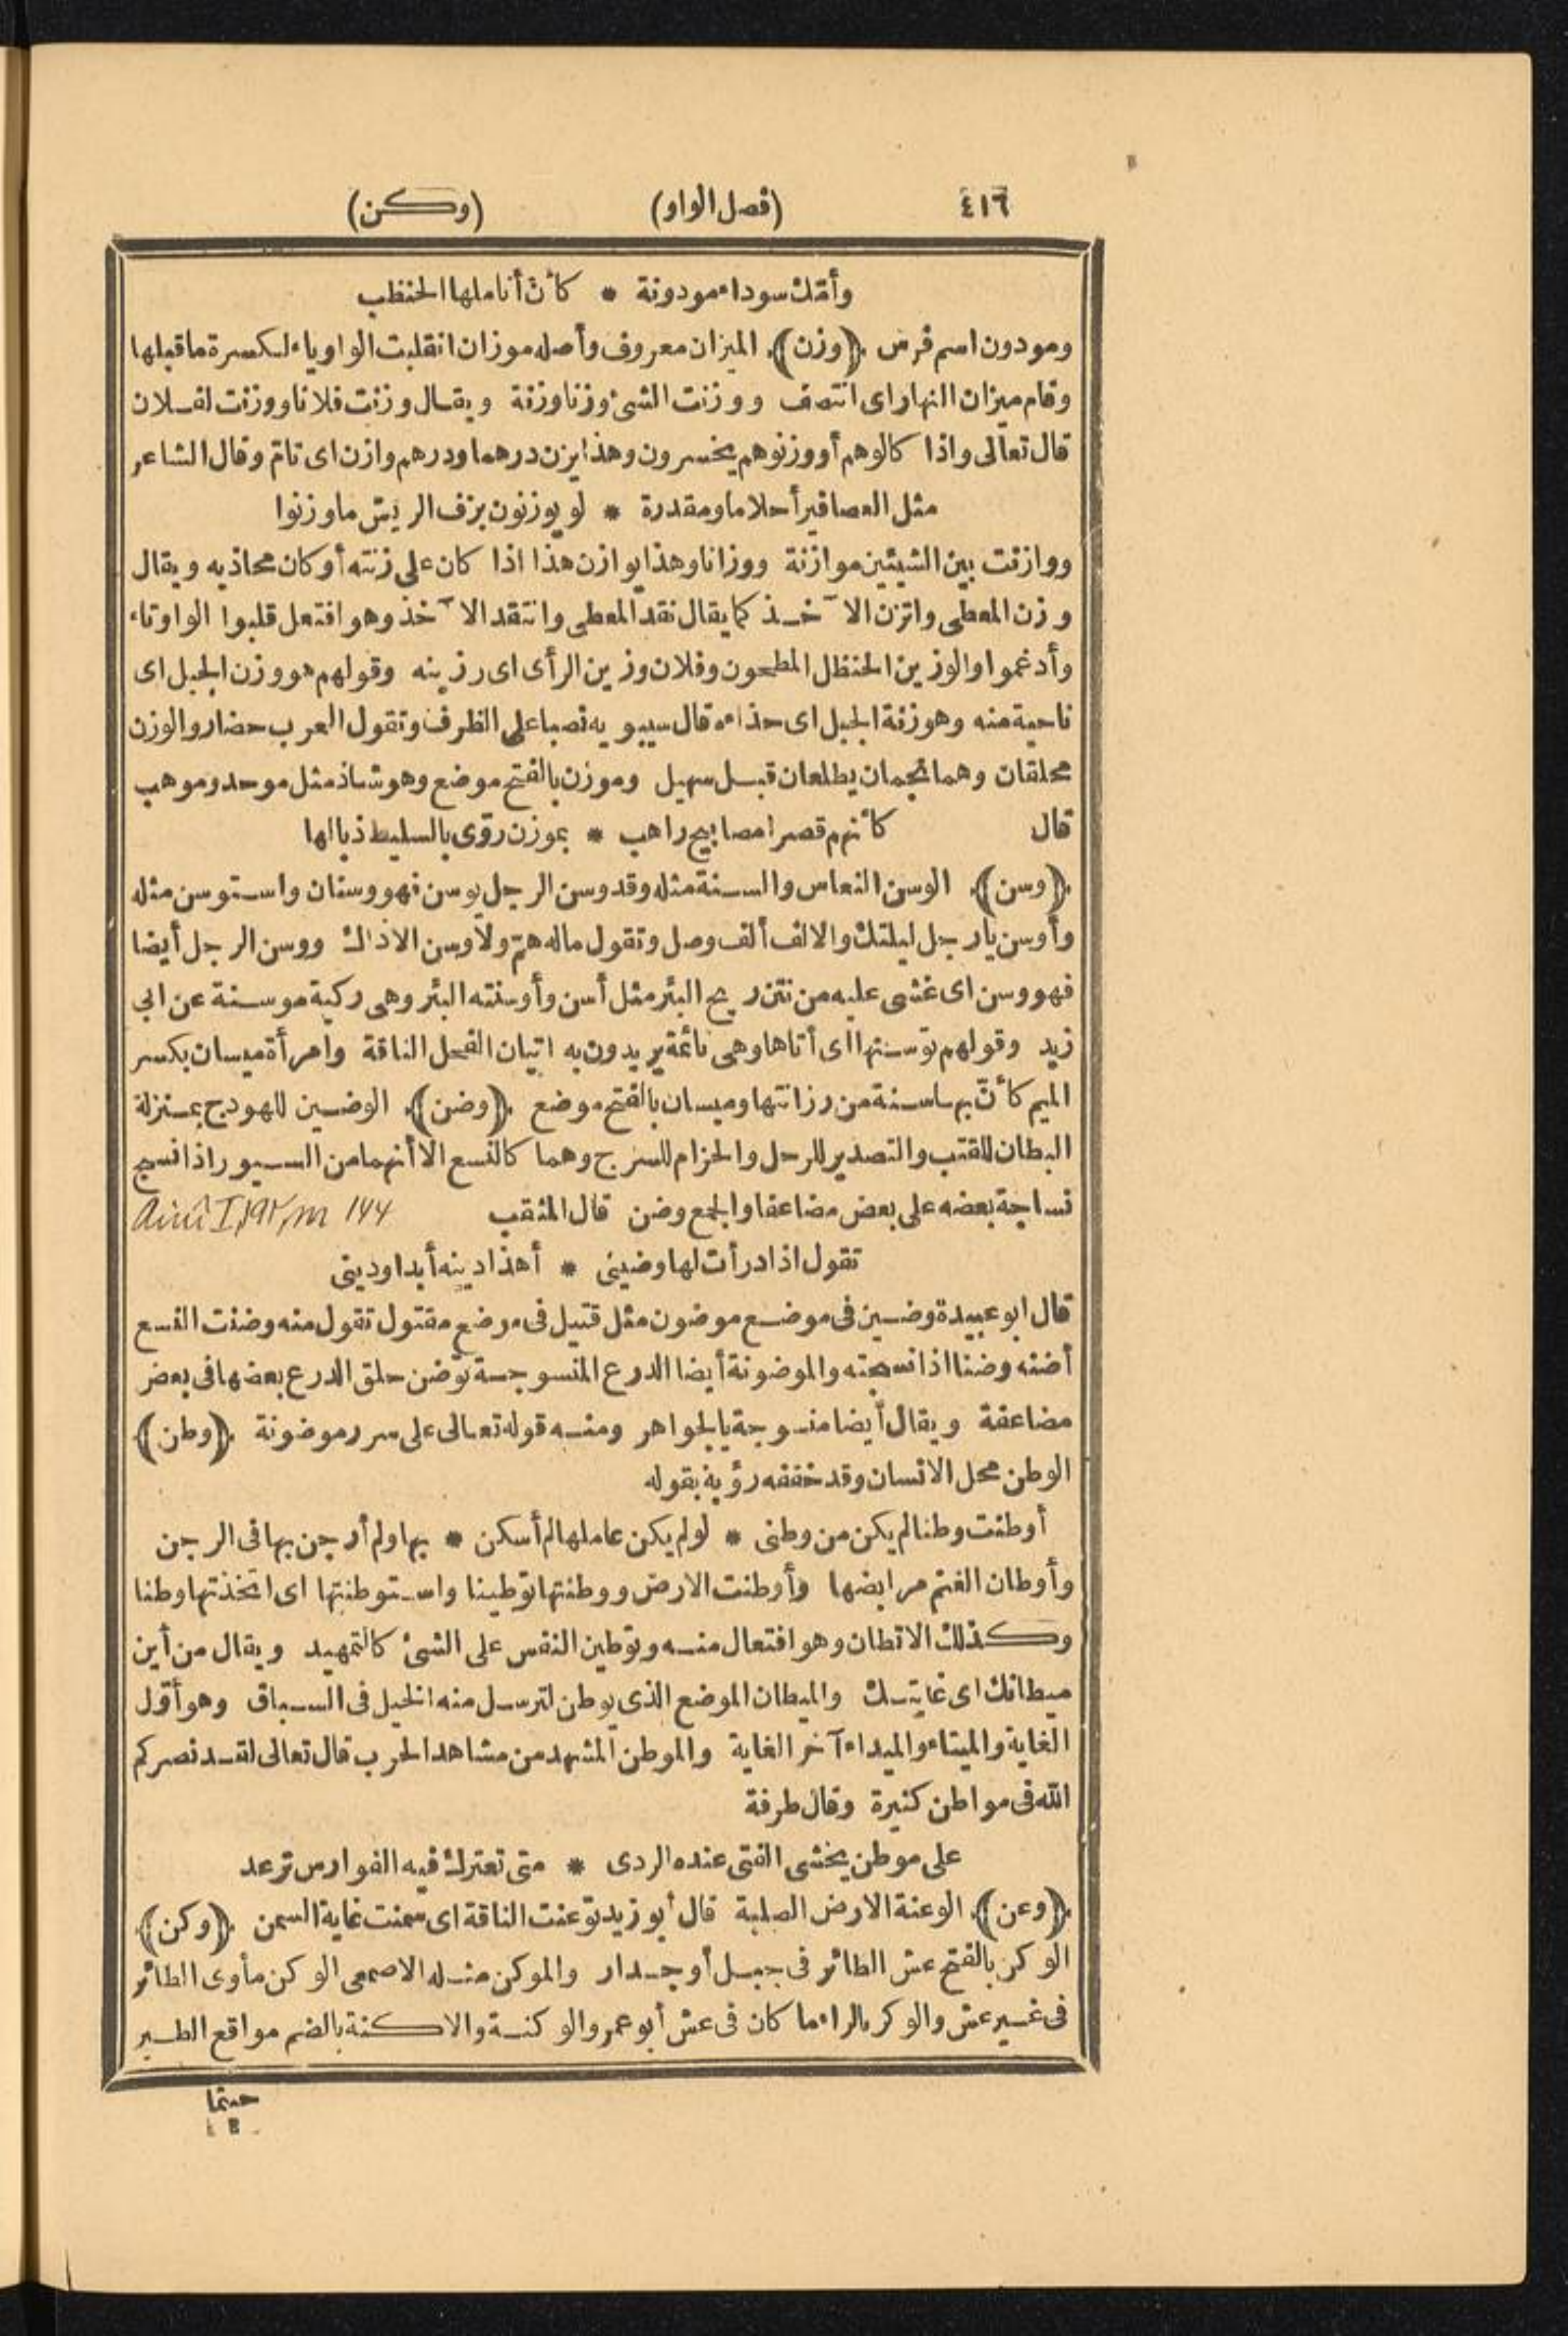 ٤١٦ (فصل الواو) (وكن)
وأمّك سوداء مودونة * كأنّ أناملها الحنظب
ومودون اسم فرس ﴿وزن﴾ الميزان معروف وأصله موزان انقلبت الواو ياء لكسرة ما قبلها
وقام ميزان النهار اى انتصف ووزنت الشئ وزنا وزنة ويقال وزنت فلانا ووزنت لفلان
قال تعالى واذا كالوهم أو وزنوهم يخسرون وهذا يزن درهما ودرهم وازن اى تامّ وقال الشاعر
مثل العصافير أحلاما ومقدرة * لو يوزنون بزف الريش ما وزنوا
ووازنت بين الشيئين موازنة ووزانا وهذا يوازن هذا اذا كان على زنته أو كان محاذيه ويقال
وزن المعطى واتزن الآخذ كما يقال نقد المعطى وانتقد الآخذ وهو افتعل قلبوا الواو تاء
وأدغموا والوزين الحنظل المطحون وفلان وزين الرأى اى رزينه وقولهم هو وزن الجبل اى
ناحية منه وهو زنة الجبل اى حذاءه قال سيبويه نصبا على الظرف وتقول العرب حضار والوزن
محلفان وهما نجمان يطلعان قبل سهيل وموزن بالفتح موضع وهو شاذ مثل موحد وموهب
قال كأنهم قصرا مصابيح راهب * بموزن روّى بالسليط ذبالها
﴿وسن﴾ الوسن النعاس والسنة مثله وقد وسن الرجل يوسن فهو وسنان واستوسن مثله
وأوسن يا رجل ليلتك والالف ألف وصل وتقول ما له همّ ولا وسن الا ذاك ووسن الرجل أيضا
فهو وسن اى غشى عليه من نتن ريح البئر مثل أسن وأوسنته البئر وهى ركية موسنة عن ابى
زيد وقولهم توسنتها اى أتاها وهى نائمة يريدون به اتيان الفحل الناقة وامرأة ميسان بكسر
الميم كأنّ بها سنة من رزانتها وميسان بالفتح موضع ﴿وضن﴾ الوضين للهودج بمنزلة
البطان للقتب والتصدير للرحل والحزام للسرج وهما كالنسع الا أنهما من السيور اذا نسج
نساجة بعضه على بعض مضاعفا والجمع وضن قال المثقب
تقول اذا درأت لها وضينى * أهذا دينه أبدا ودينى
قال ابو عبيدة وضين فى موضع موضون مثل قتيل فى موضع مقتول تقول منه وضنت النسع
أضنه وضنا اذا نسجته والموضونة أيضا الدرع المنسوجة توضن حلق الدرع بعضها فى بعض
مضاعفة ويقال أيضا منسوجة بالجواهر ومنه قوله تعالى على سرر موضونة ﴿وطن﴾
الوطن محل الانسان وقد خففه رؤبة بقوله
أوطنت وطنا لم يكن من وطنى * لو لم يكن عاملها لم أسكن * بها ولم أرجن بها فى الرجن
وأوطان الغنم مرابضها وأوطنت الارض ووطنتها توطينا واستوطنتها اى اتخذتها وطنا
وكذلك الاتطان وهو افتعال منه وتوطين النفس على الشئ كالتمهيد ويقال من أين
ميطانك اى غايتك والميطان الموضع الذى يوطن لترسل منه الخيل فى السباق وهو أوّل
الغاية والميتاء والميداء آخر الغاية والموطن المشهد من مشاهد الحرب قال تعالى لقد نصركم
الله فى مواطن كثيرة وقال طرفة
على موطن يخشى الفتى عنده الردى * متى تعترك فيه الفوارص ترعد
﴿وعن﴾ الوعنة الارض الصلبة قال أبو زيد توعنت الناقة اى سمنت غاية السمن ﴿وكن﴾
الوكن بالفتح عش الطائر فى جبل أو جدار والموكن مثله الاصمعى الوكن مأوى الطائر
فى غير عش والوكر بالراء ما كان فى عش أبو عمرو الوكنة والاكنة بالضم مواقع الطير
حيثما